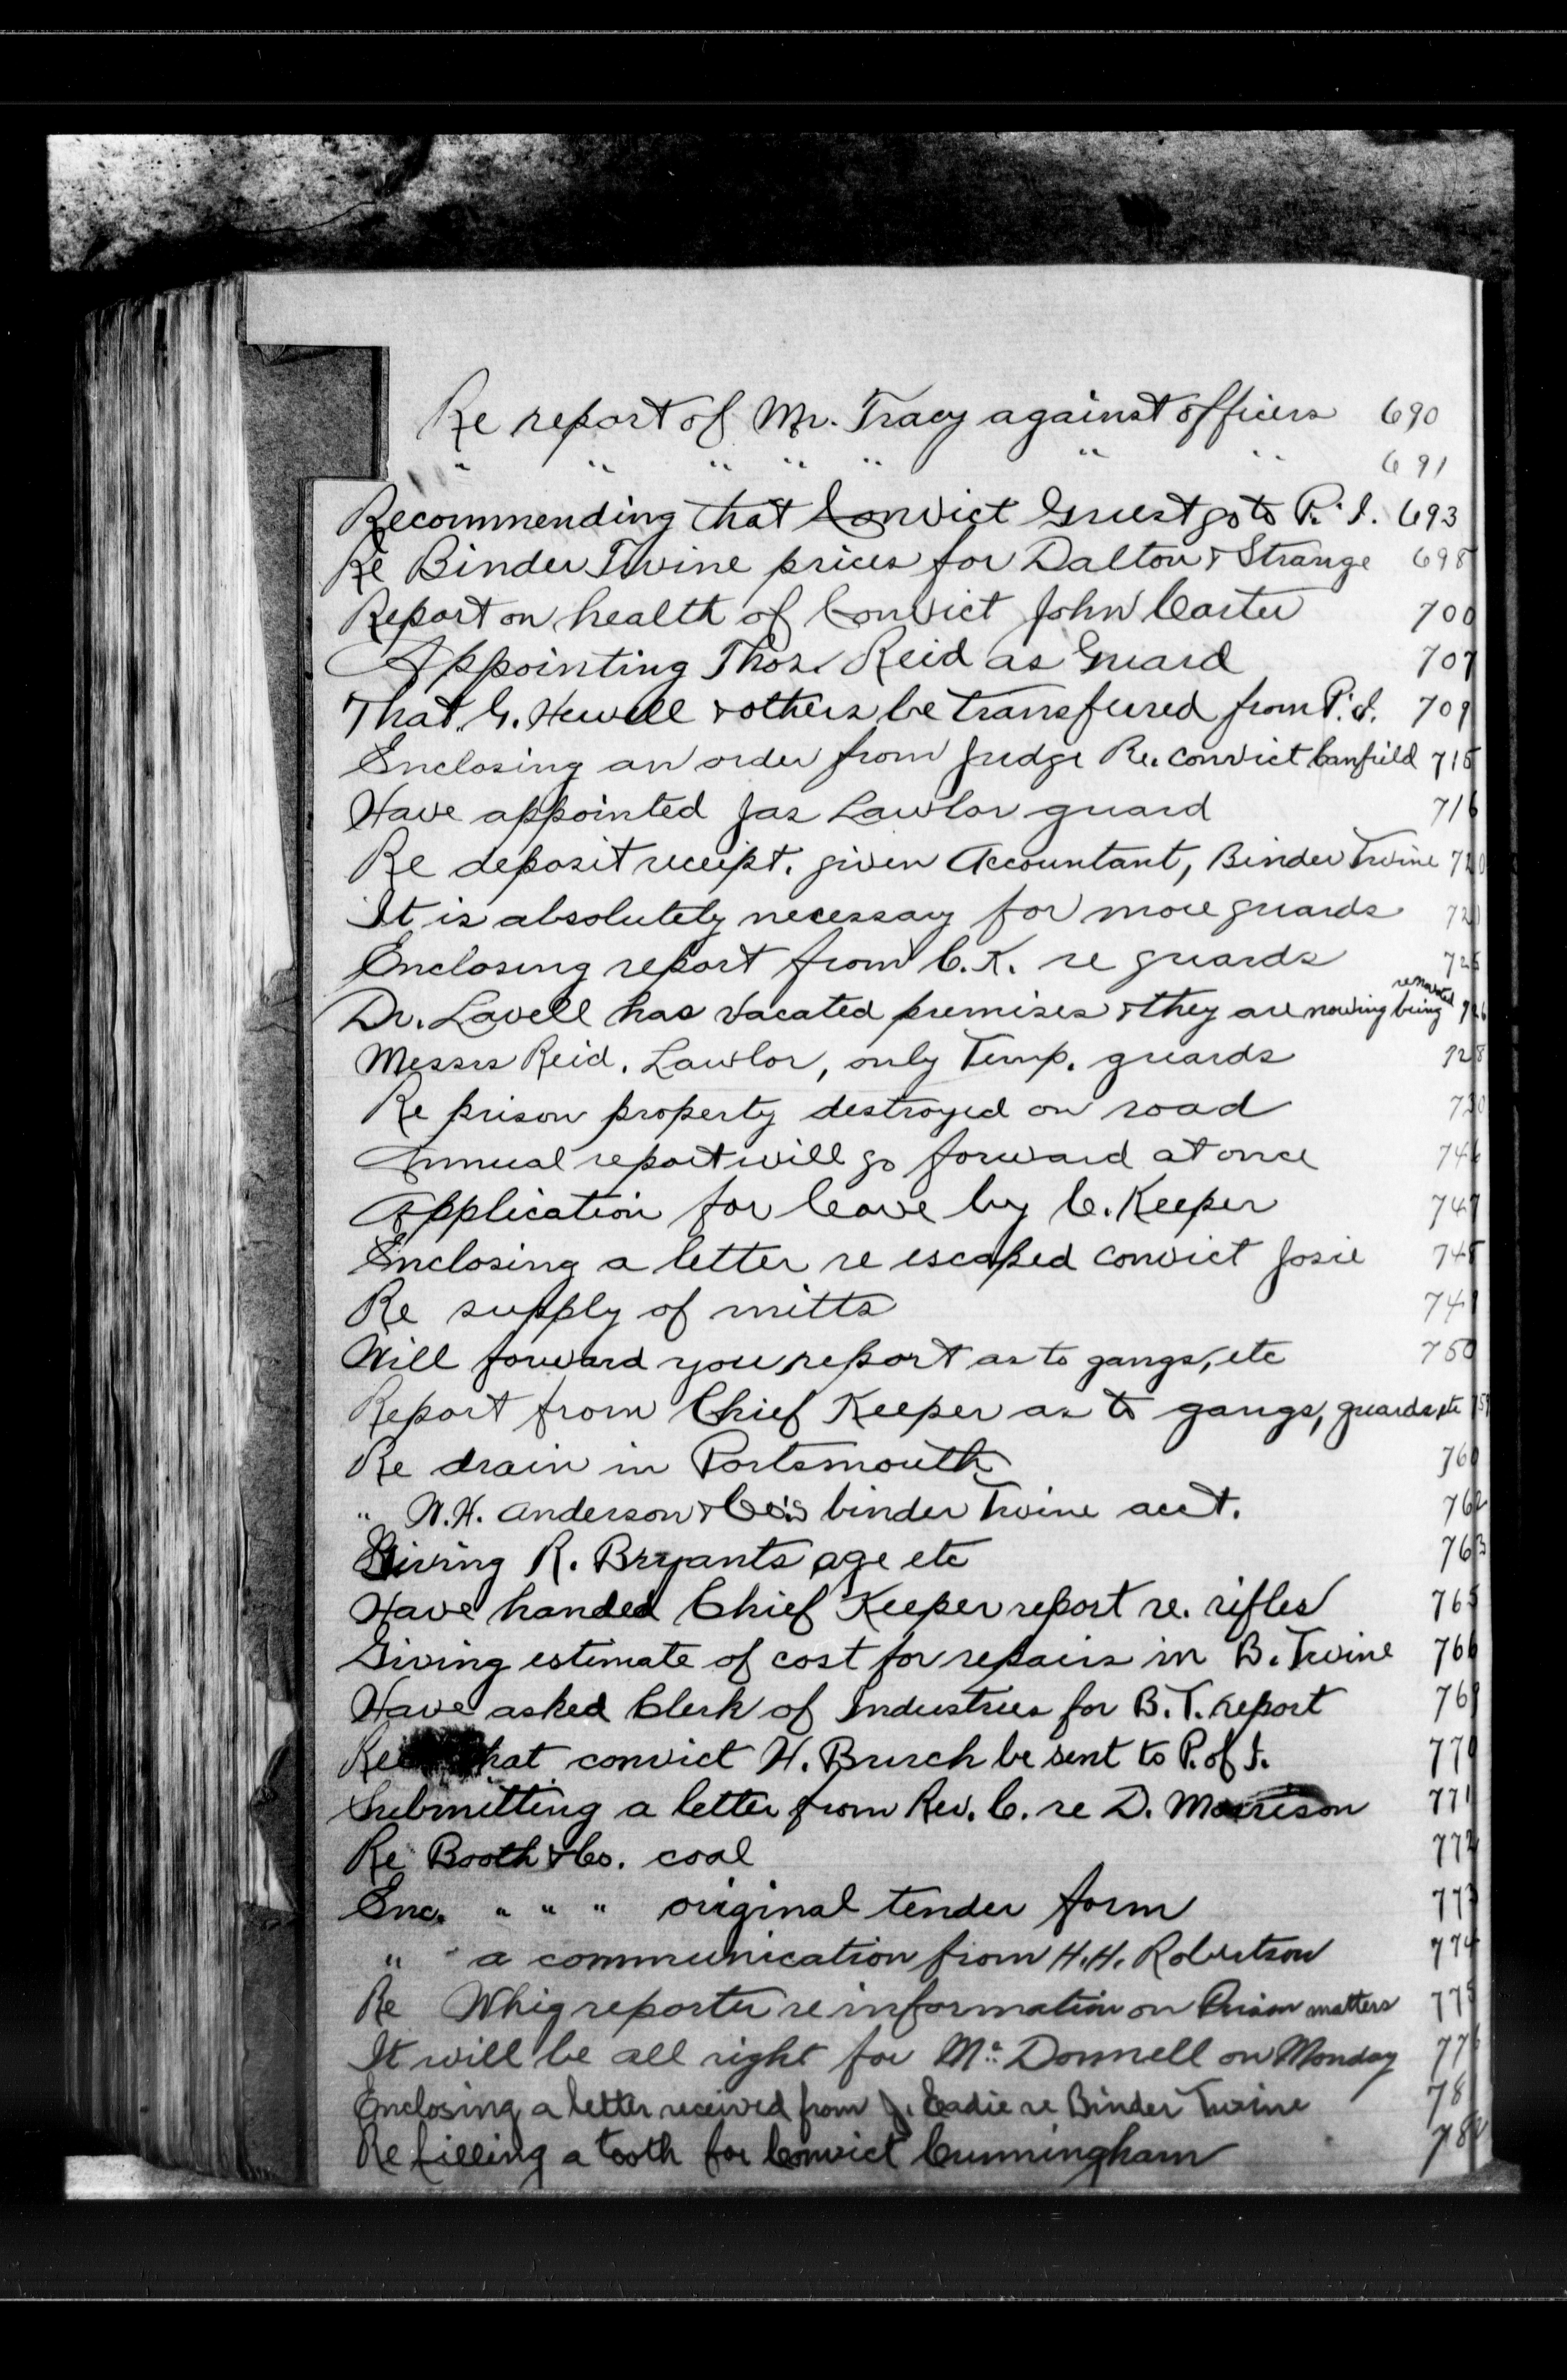 Re report of Mr. Tracy against officers 690
" " " " " " " 691
Recommending that Convict Guest go to P. I. 693
Re Binder Twine prices for Dalton & Strange 698
Report on health of Convict John Carter 700
Appointing Thos. Reid as Guard 707
That G. Hewell & others be transferred from P. I. 709
Enclosing an order from Judge Re. convict Canfield 715
Have appointed Jas Lawlor guard 716
Re deposit receipt. given Accountant, Binder Twine 720
It is absolutely necessary for more guards 721
Enclosing report from C. K. re guards 725
Dr. Lavell has vacated premises & they are now being renovated 726
Messrs Reid, Lawlor, only Temp. guards 728
Re prison property destroyed on road 730
Annual report will go forward at once 746
Application for leave by C. Keeper 747
Enclosing a letter re escaped convict Josie 748
Re supply of mitts 749
Will forward you report as to gangs, etc 750
Report from Chief Keeper as to gangs, guards etc 759
Re drain in Portsmouth 760
" W. H. Anderson & Co's binder Twine acct. 762
Giving R. Bryants age etc 763
Have handed Chief Keeper report re. rifles 765
Giving estimate of cost for repairs in B. Twine 766
Have asked Clerk of Industries for B. T. report 769
Re that convict H. Burch be sent to P. of I. 770
Submitting a letter from Rev. C. re D. Morrison 771
Re Booth & Co. coal 772
Enc. " " " original tender form 773
" a communication from H. H. Robertson 774
Re Whig reporter re information on Prison matters 775
It will be all right for Mc Donnell on Monday 776
Enclosing a letter received from J. Eadie re Binder Twine 781
Re filling a tooth for Convict Cunningham 782